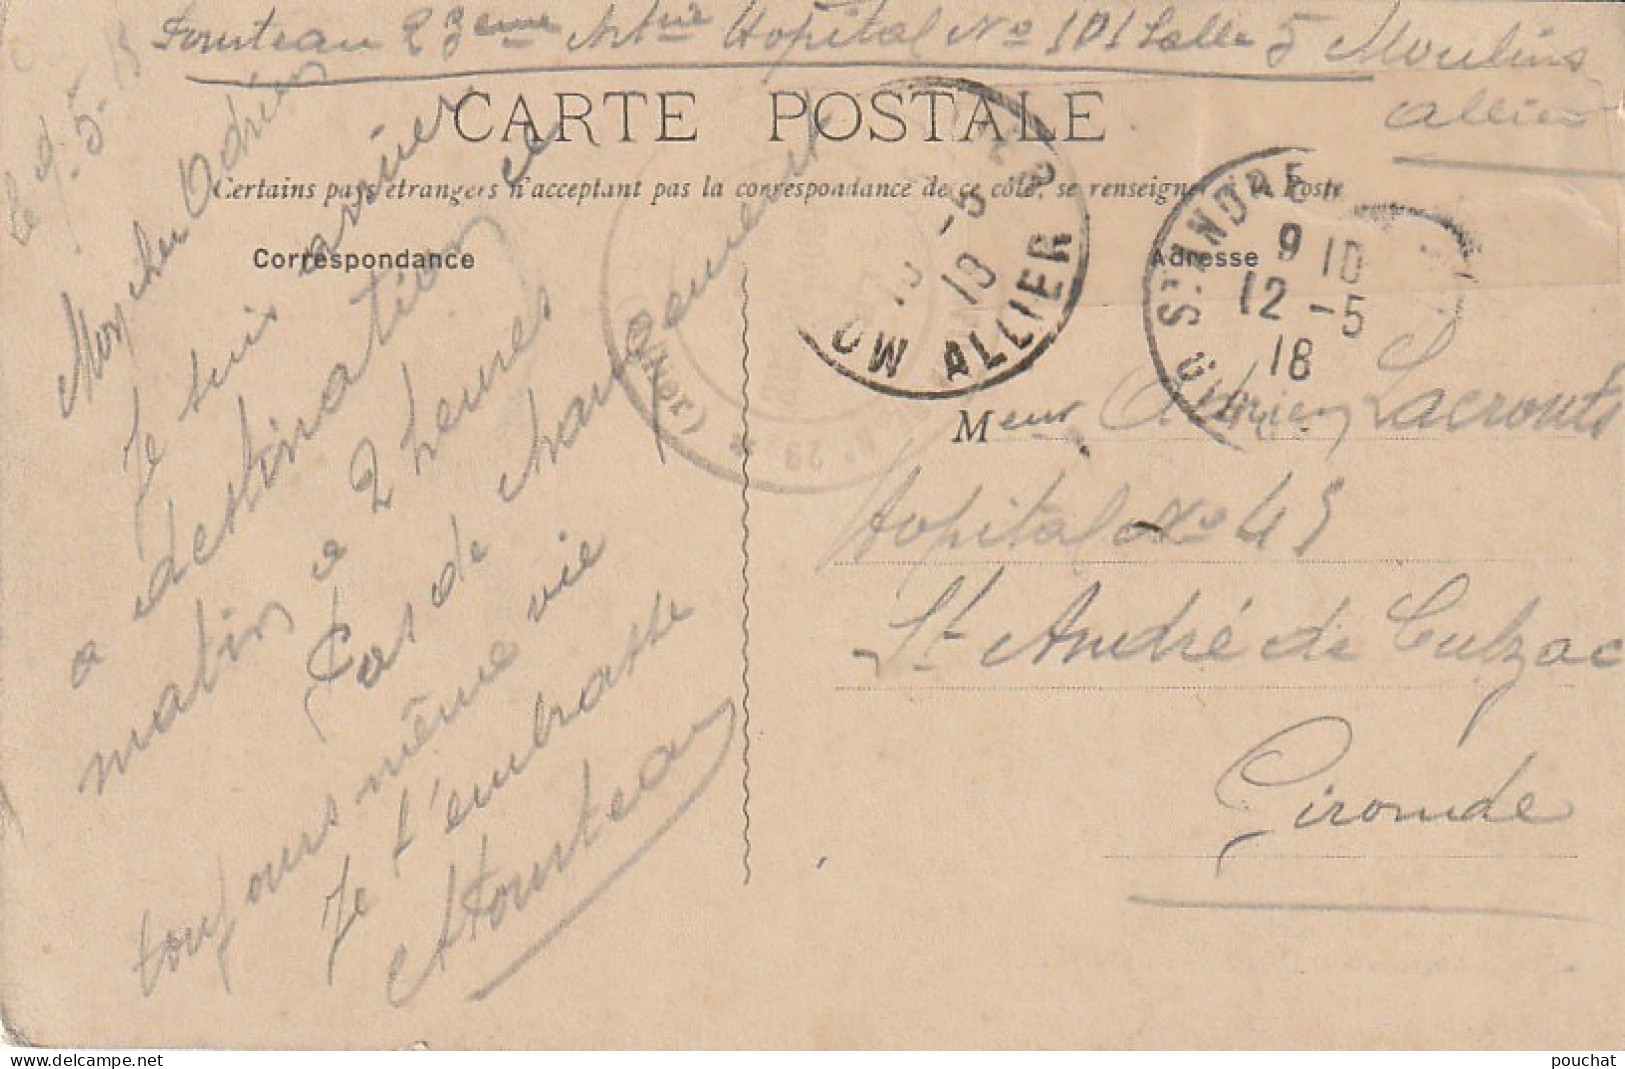 Fonteau 23eme Artrie Hopital No 101 Salle 5 Moulins
Allier
CARTE POSTALE
Certains pays étrangers n'acceptant pas la correspondance de ce côté, se renseigner à la Poste
Correspondance
Adresse
le 9.5.18
Mon cher Adrien
Je suis arrivé
a destination ce
matin a 2 heures
Pas de changement
toujours même vie
Je t'embrasse
AFonteau
ALLIER
10 -5
18
(Allier)
N° 29
ST ANDRE
9 10
12 -5
18
Meur Adrien Lacrouts
Hopital No 45
St André de Cubzac
Gironde
pouchat